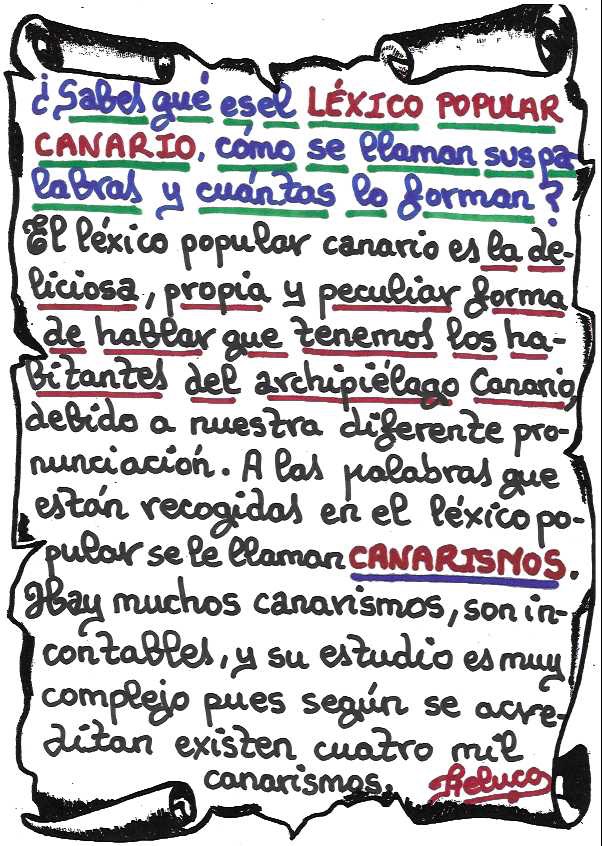 ¿Sabes qué es el LÉXICO POPULAR
CANARIO, cómo se llaman sus pa-
labras y cuántas lo forman?
El léxico popular canario es la de-
liciosa, propia y peculiar forma
de hablar que tenemos los ha-
bitantes del archipiélago Canario,
debido a nuestra diferente pro-
nunciación. A las palabras que
están recogidas en el léxico po-
pular se le llaman CANARISMOS.
Hay muchos canarismos, son in-
contables, y su estudio es muy
complejo pues según se acre-
ditan existen cuatro mil
canarismos.